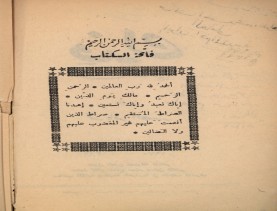 بسم الله الرحمن الرحيم
فاتحة الكتاب
الحمد لله رب العالمين * الرحمن
الرحيم * مالك يوم الدين *
إياك نعبد وإياك نستعين * إهدنا
الصراط المستقيم * صراط الذين
أنعمت عليهم غير المغضوب عليهم
ولا الضالين *